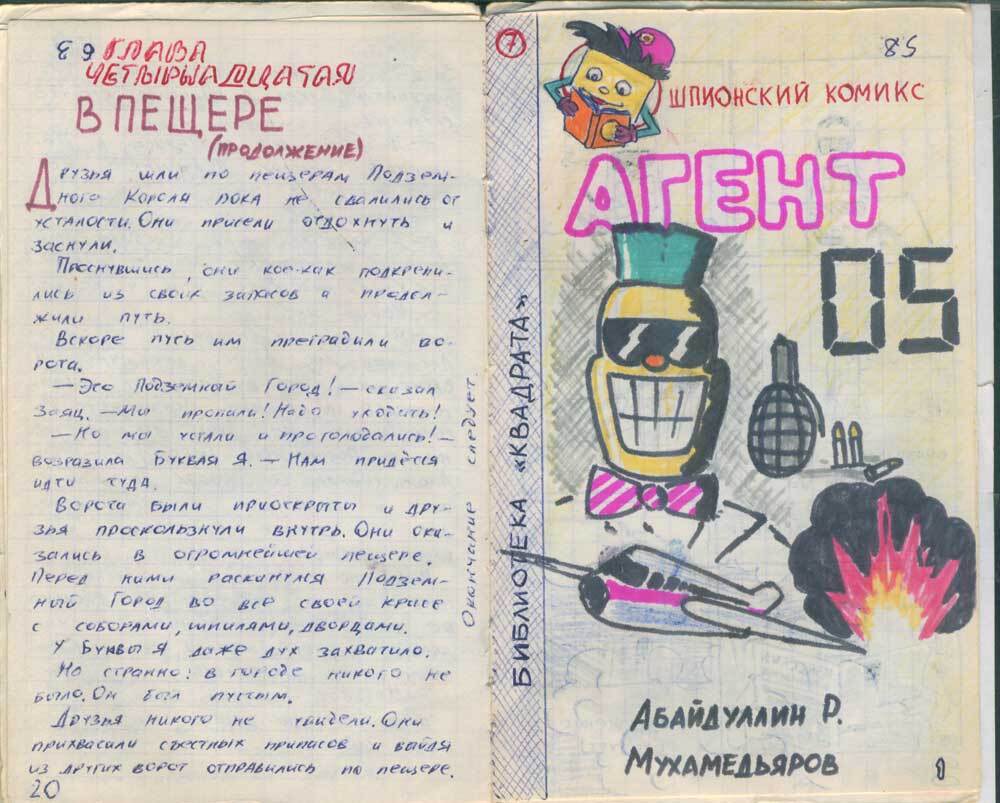 89 ГЛАВА
ЧЕТЫРНАДЦАТАЯ
В ПЕЩЕРЕ
(ПРОДОЛЖЕНИЕ)
Друзья шли по пещерам Подзем-
ного Короля пока не свалились от
усталости. Они присели отдохнуть и
заснули.
Проснувшись, они кое-как подкрепи-
лись из своих запасов и продол-
жили путь.
Вскоре путь им преградили во-
рота.
— Это Подземный Город! — сказал
Заяц. — Мы пропали! Надо уходить!
— Но мы устали и проголодались! —
возразила Буква Я. — Нам придётся
идти туда.
Ворота были приоткрыты и дру-
зья проскользнули внутрь. Они ока-
зались в огромнейшей пещере.
Перед ними раскинулся Подзем-
ный Город во всей своей красе
с соборами, шпилями, дворцами.
У Буквы Я даже дух захватило.
Но странно: в городе никого не
было. Он был пустым.
Друзья никого не увидели. Они
прихвасили съестных припасов и выйдя
из других ворот отправились по пещере.
20
Окончание следует.
БИБЛИОТЕКА «КВАДРАТА»
7
85
ШПИОНСКИЙ КОМИКС
АГЕНТ
05
АБАЙДУЛЛИН Р.
МУХАМЕДЬЯРОВ
1